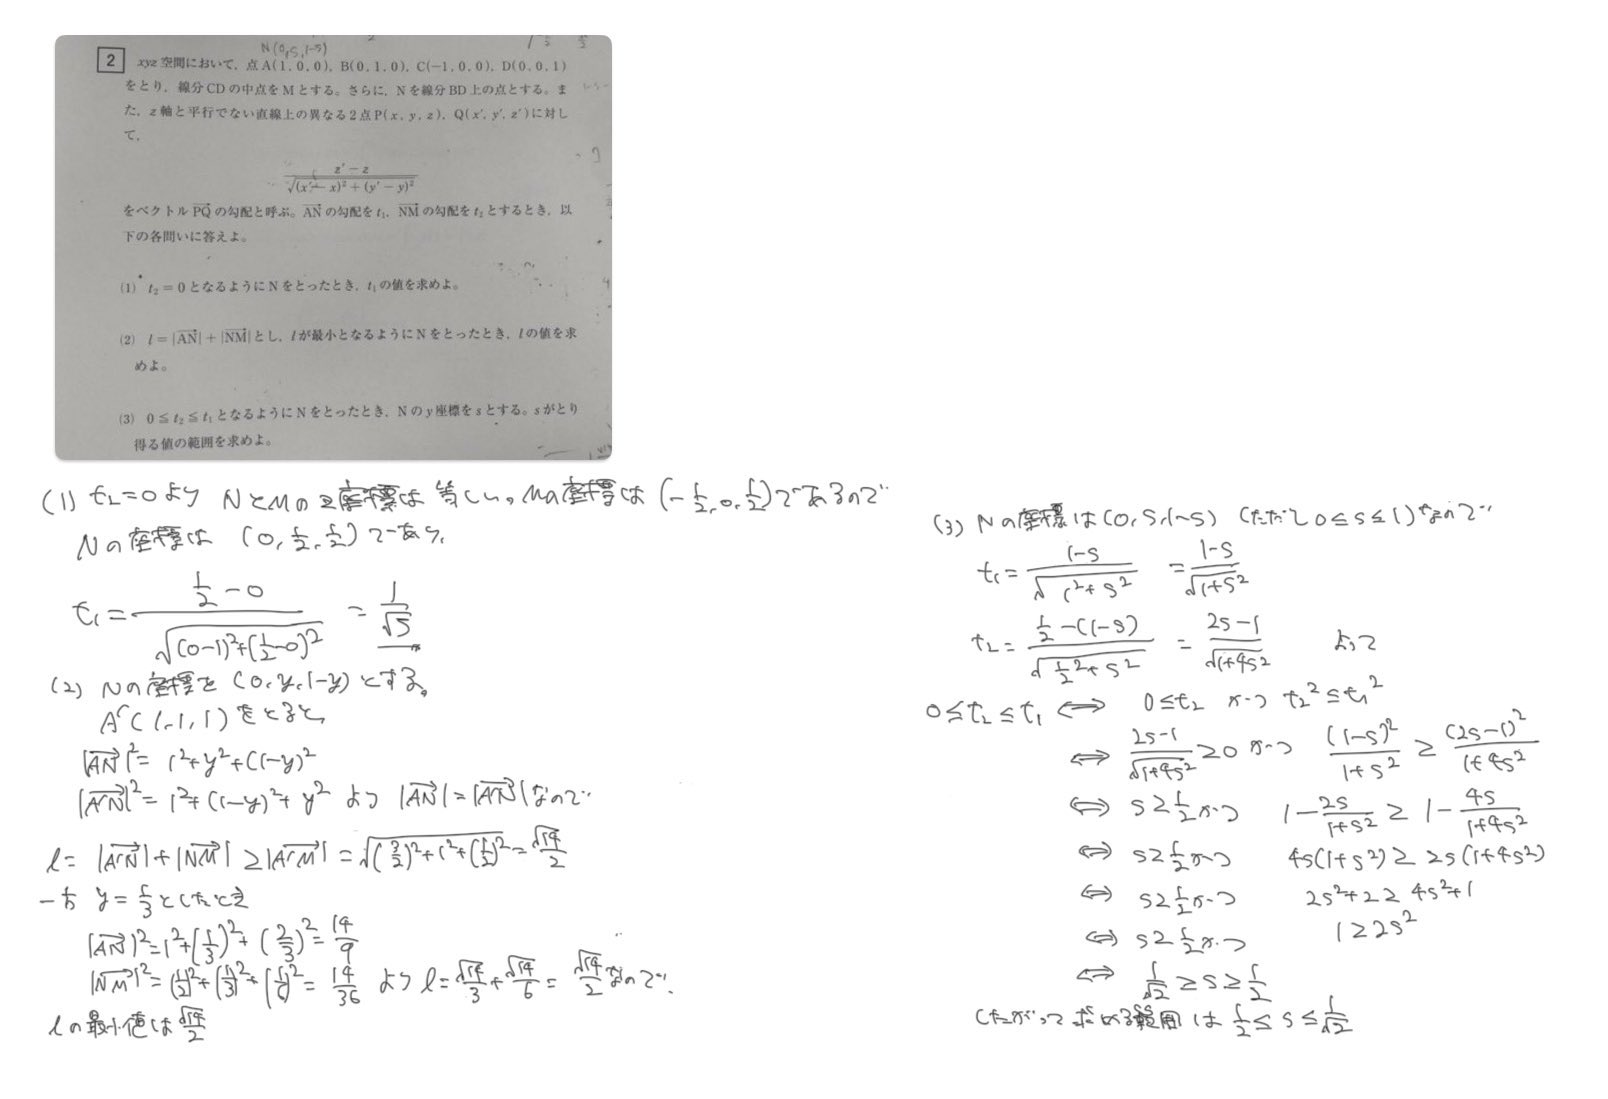 N(0,s,1-s)
2 xyz空間において，点A(1, 0, 0)，B(0, 1, 0)，C(-1, 0, 0)，D(0, 0, 1)
をとり，線分CDの中点をMとする。さらに，Nを線分BD上の点とする。ま
た，z軸と平行でない直線上の異なる2点P(x, y, z)，Q(x′, y′, z′)に対し
て，
z′-z / √((x′-x)²+(y′-y)²)
をベクトルPQの勾配と呼ぶ。ANの勾配をt₁，NMの勾配をt₂とするとき，以
下の各問いに答えよ。
(1) t₂=0となるようにNをとったとき，t₁の値を求めよ。
(2) l=|AN|+|NM|とし，lが最小となるようにNをとったとき，lの値を求
めよ。
(3) 0≦t₂≦t₁となるようにNをとったとき，Nのy座標をsとする。sがとり
得る値の範囲を求めよ。
(1) t₂=0より NとMのz座標は等しい。Mの座標は(-1/2, 0, 1/2)であるので
Nの座標は (0, 1/2, 1/2)であり、
t₁= (1/2-0) / √((0-1)²+(1/2-0)²) = 1/√5
(2) Nの座標を(0, y, 1-y)とする。
A'(1,-1,1)をとると、
|AN|²=1²+y²+(1-y)²
|A'N|²=1²+(1-y)²+y² より |AN|=|A'N|なので
l=|A'N|+|NM|≧|A'M|=√((3/2)²+1²+(1/2)²)=√14/2
一方 y=1/3としたとき
|AN|²=1²+(1/3)²+(2/3)²=14/9
|NM|²=(1/2)²+(1/3)²+(1/6)²=14/36 より l=√14/3+√14/6=√14/2なので
lの最小値は√14/2
(3) Nの座標は(0, s, 1-s) (ただし0≦s≦1)なので
t₁= (1-s)/√(1²+s²) = (1-s)/√(1+s²)
t₂= (1/2-(1-s))/√(1/2²+s²) = (2s-1)/√(1+4s²) よって
0≦t₂≦t₁ ⇔ 0≦t₂ かつ t₂²≦t₁²
⇔ (2s-1)/√(1+4s²)≧0 かつ (1-s)²/(1+s²)≧(2s-1)²/(1+4s²)
⇔ s≧1/2 かつ 1-2s/(1+s²)≧1-4s/(1+4s²)
⇔ s≧1/2 かつ 4s(1+s²)≧2s(1+4s²)
⇔ s≧1/2 かつ 2s²+2≧4s²+1
⇔ s≧1/2 かつ 1≧2s²
⇔ 1/√2≧s≧1/2
したがって求める範囲は 1/2≦s≦1/√2